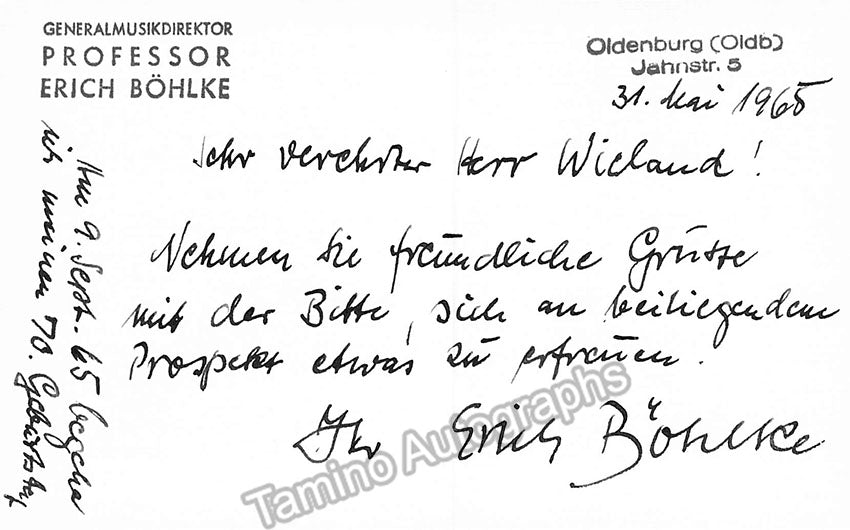 GENERALMUSIKDIREKTOR
PROFESSOR
ERICH BÖHLKE
Oldenburg (Oldb)
Jahnstr. 5
31. Mai 1965
Sehr verehrter Herr Wieland!
Nehmen Sie freundliche Grüsse
mit der Bitte, sich an beiliegendem
Prospekt etwas zu erfreuen.
Ihr Erich Böhlke
Am 9. Sept. 65 begehe
ich meinen 70. Geburtstag
Tamino Autographs